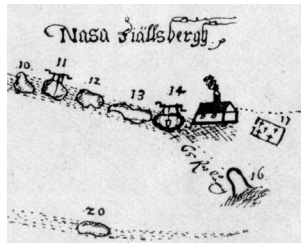 Nasa Fiällsbergh
10. 11 12 13 14 17
16
20